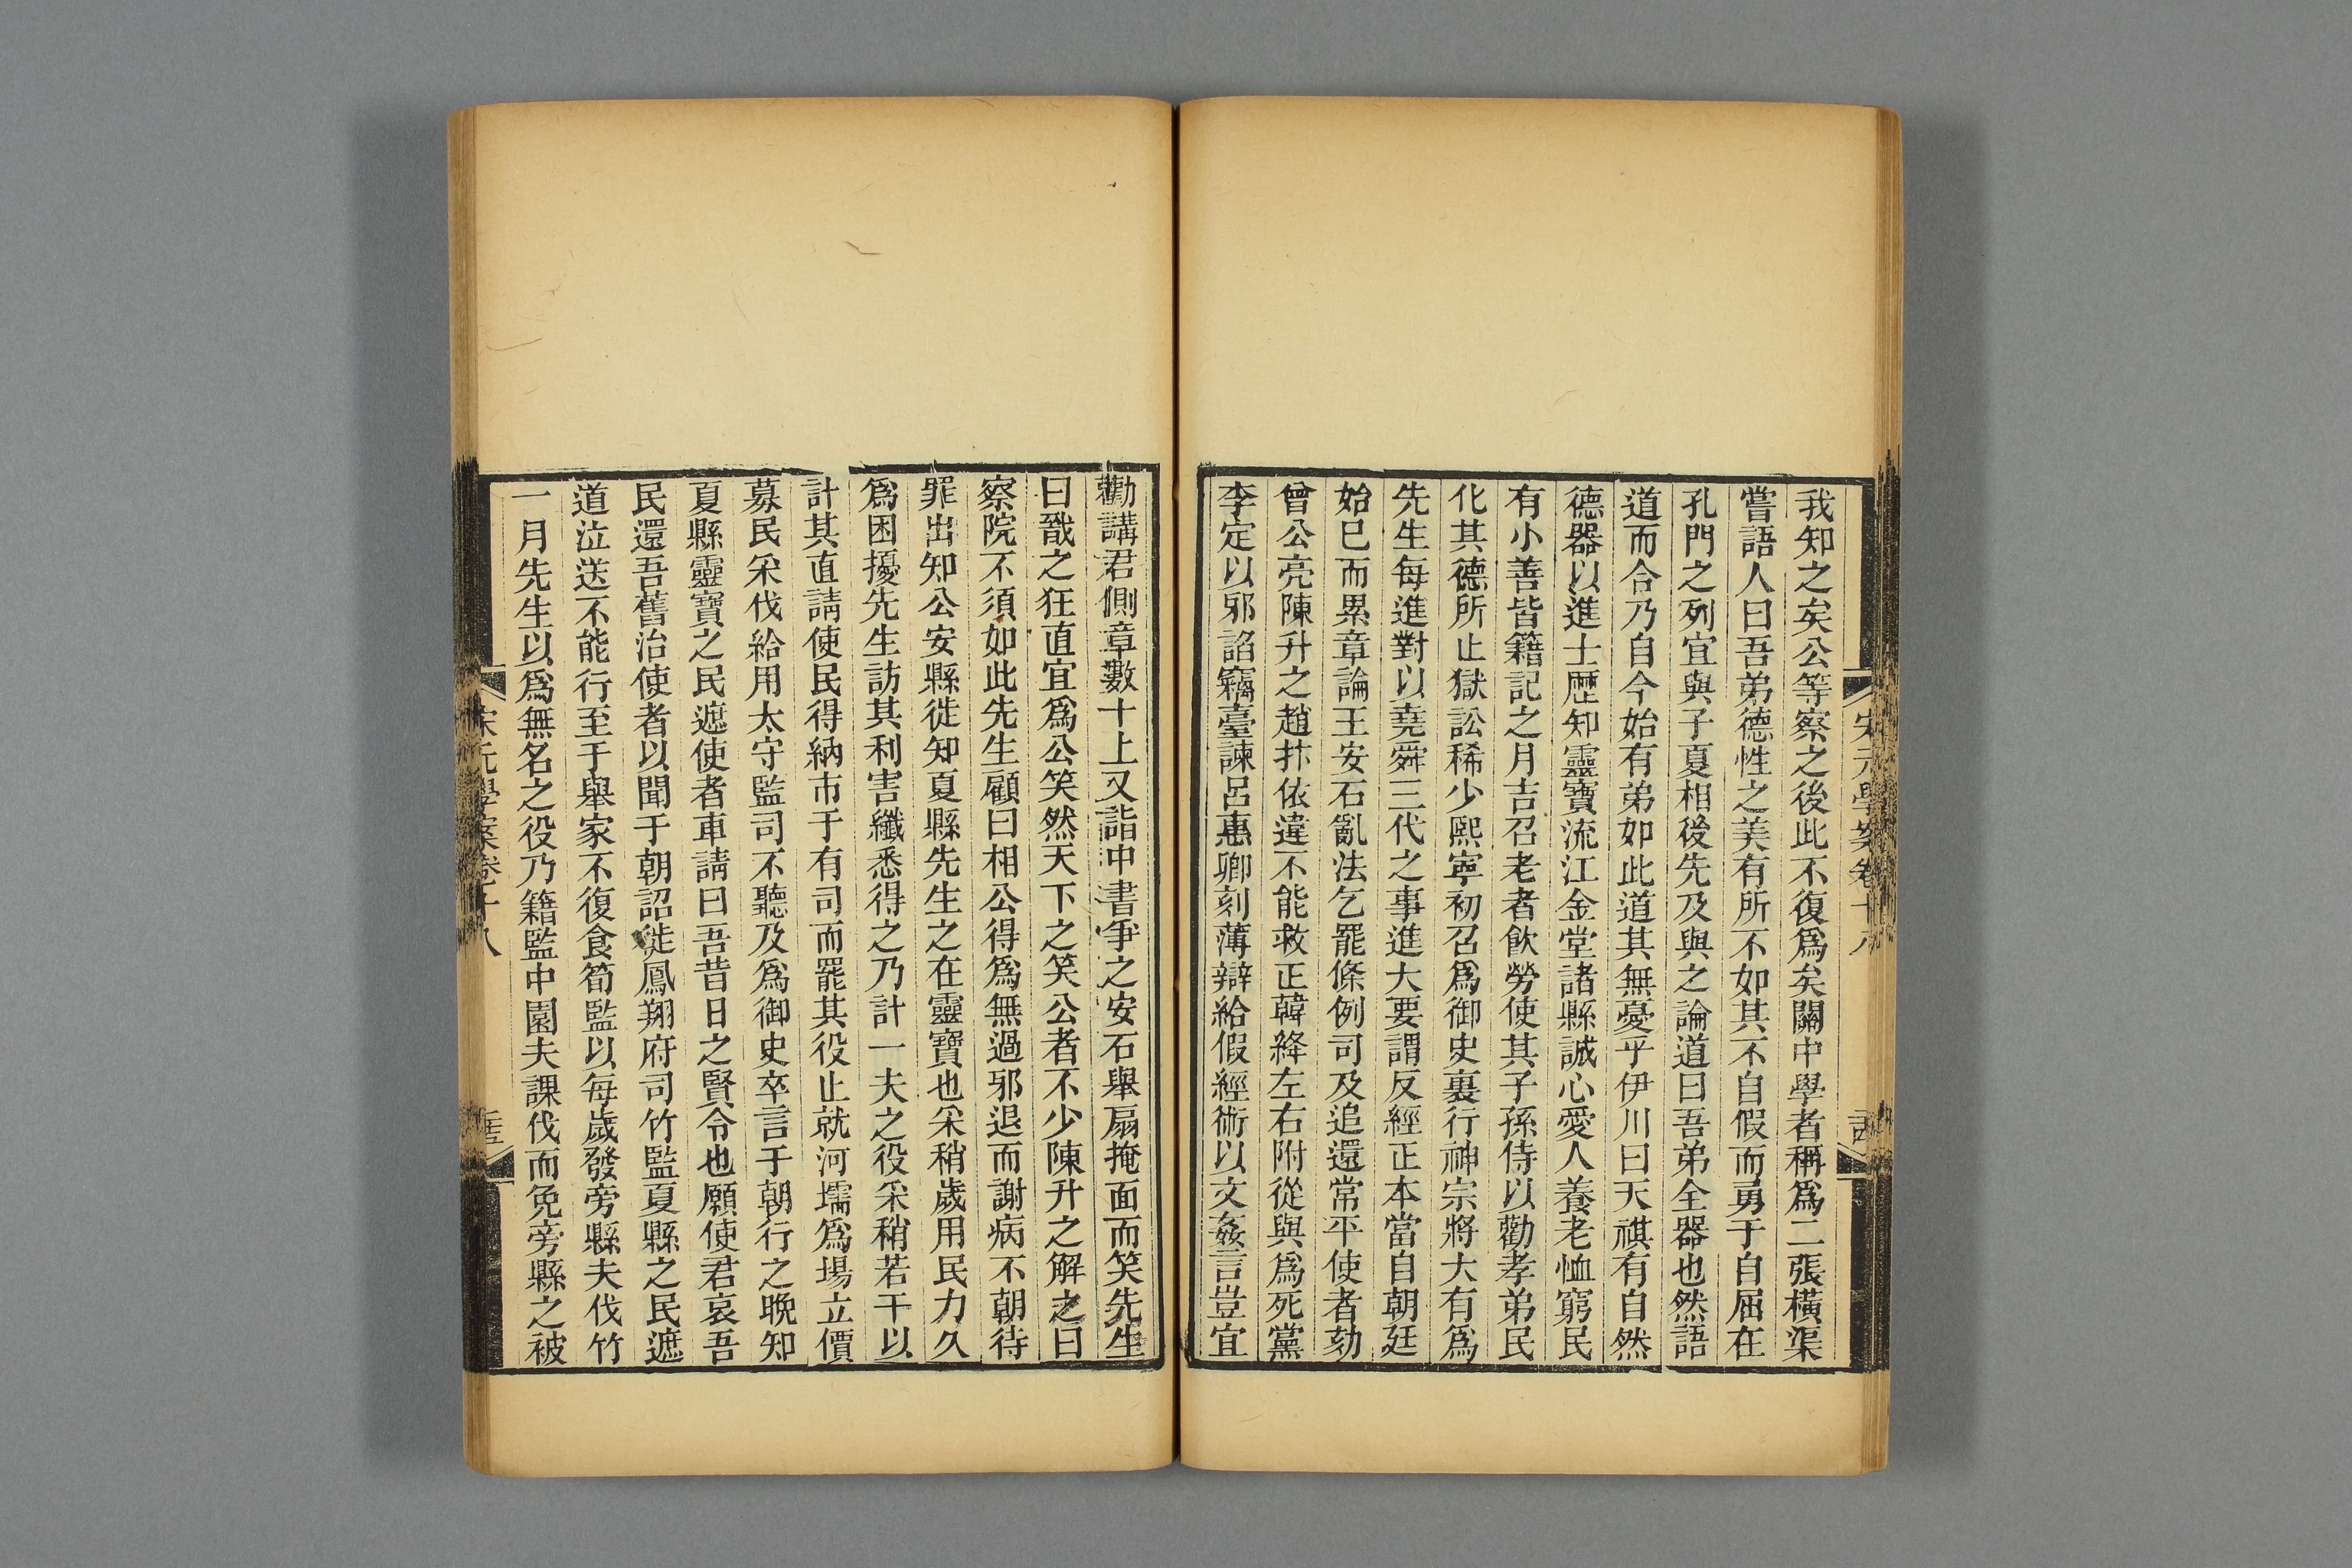 我知之矣公等察之後此不復爲矣關中學者稱爲二張橫渠
嘗語人曰吾弟德性之美有所不如其不自假而勇于自屈在
孔門之列宜與子夏相後先及與之論道曰吾弟全器也然語
道而合乃自今始有弟如此道其無憂乎伊川曰天祺有自然
德器以進士歷知靈寶流江金堂諸縣誠心愛人養老恤窮民
有小善皆籍記之月吉召老者飲勞使其子孫侍以勸孝弟民
化其德所止獄訟稀少熙寧初召爲御史裏行神宗將大有爲
先生每進對以堯舜三代之事進大要謂反經正本當自朝廷
始已而累章論王安石亂法乞罷條例司及追還常平使者劾
曾公亮陳升之趙抃依違不能救正韓絳左右附從與爲死黨
李定以邪諂竊臺諫呂惠卿刻薄辯給假經術以文姦言豈宜
勸講君側章數十上又詣中書爭之安石舉扇掩面而笑先生
曰戩之狂直宜爲公笑然天下之笑公者不少陳升之解之曰
察院不須如此先生顧曰相公得爲無過邪退而謝病不朝待
罪出知公安縣徙知夏縣先生之在靈寶也采稍歲用民力久
爲困擾先生訪其利害纖悉得之乃計一夫之役采稍若干以
計其直請使民得納市于有司而罷其役止就河壖爲場立價
募民采伐給用太守監司不聽及爲御史卒言于朝行之晚知
夏縣靈寶之民遮使者車請曰吾昔日之賢令也願使君哀吾
民還吾舊治使者以聞于朝詔徙鳳翔府司竹監夏縣之民遮
道泣送不能行至于舉家不復食筍監以每歲發旁縣夫伐竹
一月先生以爲無名之役乃籍監中園夫課伐而免旁縣之被
宋元學案卷十八